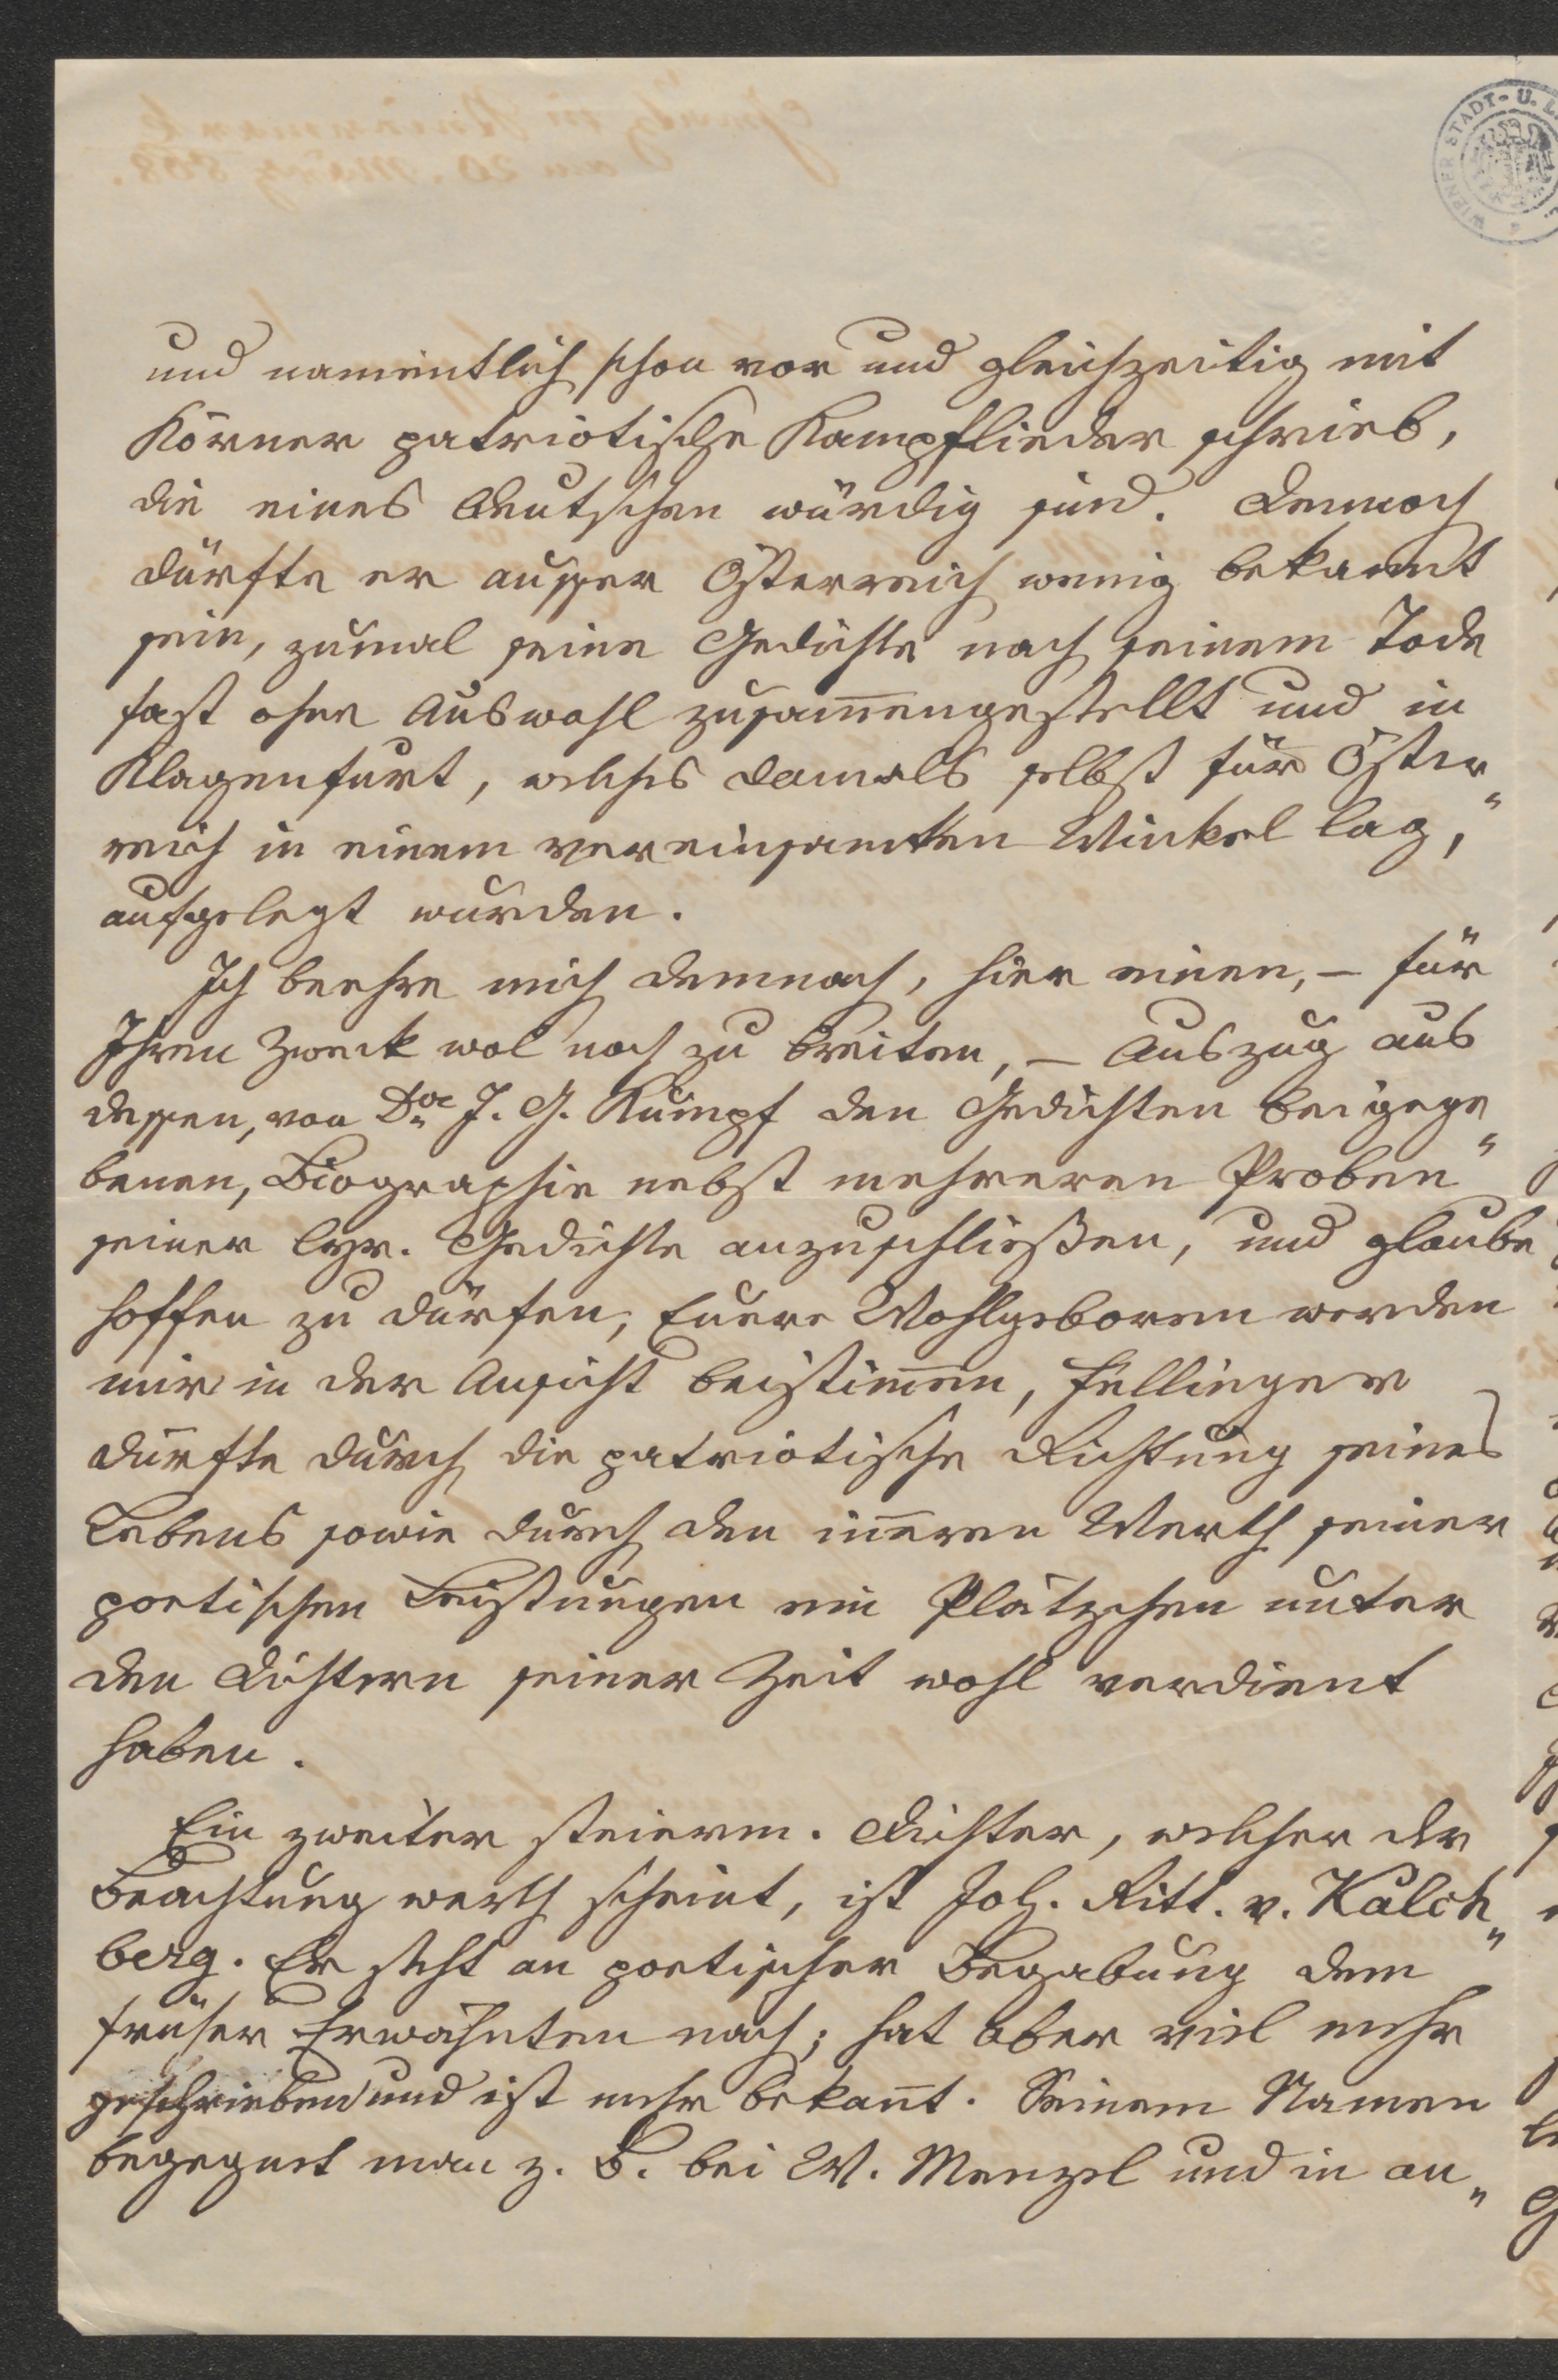 WIENER STADT- U. L
und namentlich schon vor und gleichzeitig mit
Körner patriotische Kampflieder schrieb,
die eines Deutschen würdig sind. Dennoch
dürfte er ausser Österreich wenig bekannt
sein, zumal seine Gedichte nach seinem Tode
fast ohne Auswahl zusam̅engestellt und in
Klagenfurt, welches damals selbst für Öster„
reich in einem vereinsamten Winkel lag,
aufgelegt wurden.
Ich beehre mich demnach, hier einen, – für
Ihren Zweck wol noch zu breiten, – Auszug aus
dessen, von Dor J. G. Kumpf den Gedichten beigege„
benen, Biographie nebst mehreren Proben
seiner lyr. Gedichte anzuschließen, und glaube
hoffen zu dürfen, Euere Wohlgeboren werden
mir in der Ansicht beistim̅en, Fellinger
dürfte durch die patriotische Richtung seines
Lebens sowie durch den in̅eren Werth seiner
poetischen Leistungen ein Plätzchen unter
den Dichtern seiner Zeit wohl verdient
haben.
Ein zweiter steierm. Dichter, welcher der
Beachtung werth scheint, ist Joh. Ritt. v. Kalch„
berg. Er steht an poetischer Begabung dem
früher Erwähnten nach; hat aber viel mehr
geschrieben und ist mehr bekan̅t. Seinem Namen
begegnet man z. B. bei W. Menzel und in an„